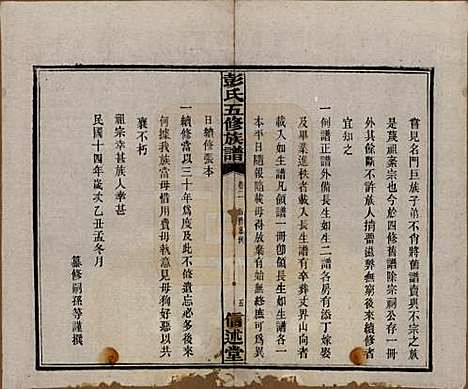 嘗見名門巨族子弟會將舊譜賣與不宗之族
是蔑祖棄宗也今於四修舊譜除宗祠公存一冊
外其餘斷不許族人捎留滋弊無窮後來續修者
宜知之
一例譜正譜外備長生如生二譜各房有添丁嫁娶
及畢業進秩者載入長生譜有卒葬丈界山向者
載入如生譜凡領譜一冊即領長生如生譜各一
本平日隨報臨載毋得放棄有始無終應可為異
日續修張本
一續修當以三十年為度此不修遺忘必多後來
何據我族當毋惜用費毋執意見毋狥好惡以共
襄不朽
祖宗幸甚族人幸甚
民國十四年歲次乙丑孟冬月
纂修嗣孫等謹撰
彭氏五修族譜
卷
五
信述堂